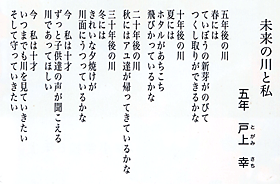 未来の川と私
五年 戸上 幸
とがみ さち
五年後の川
春には
ていぼうの新芽がのびて
つくし取りができるかな
十年後の川
夏には
ホタルがあちこち
飛びかっているかな
二十年後の川
秋にはアユ達が帰ってきているかな
三十年後の川
冬には
きれいな夕焼けが
川面にうつっているかな
今 私は十才
ずっと子供達の声が聞こえる
川であってほしい
今 私は十才
いつまでも川を見ていきたい
そして守っていきたい